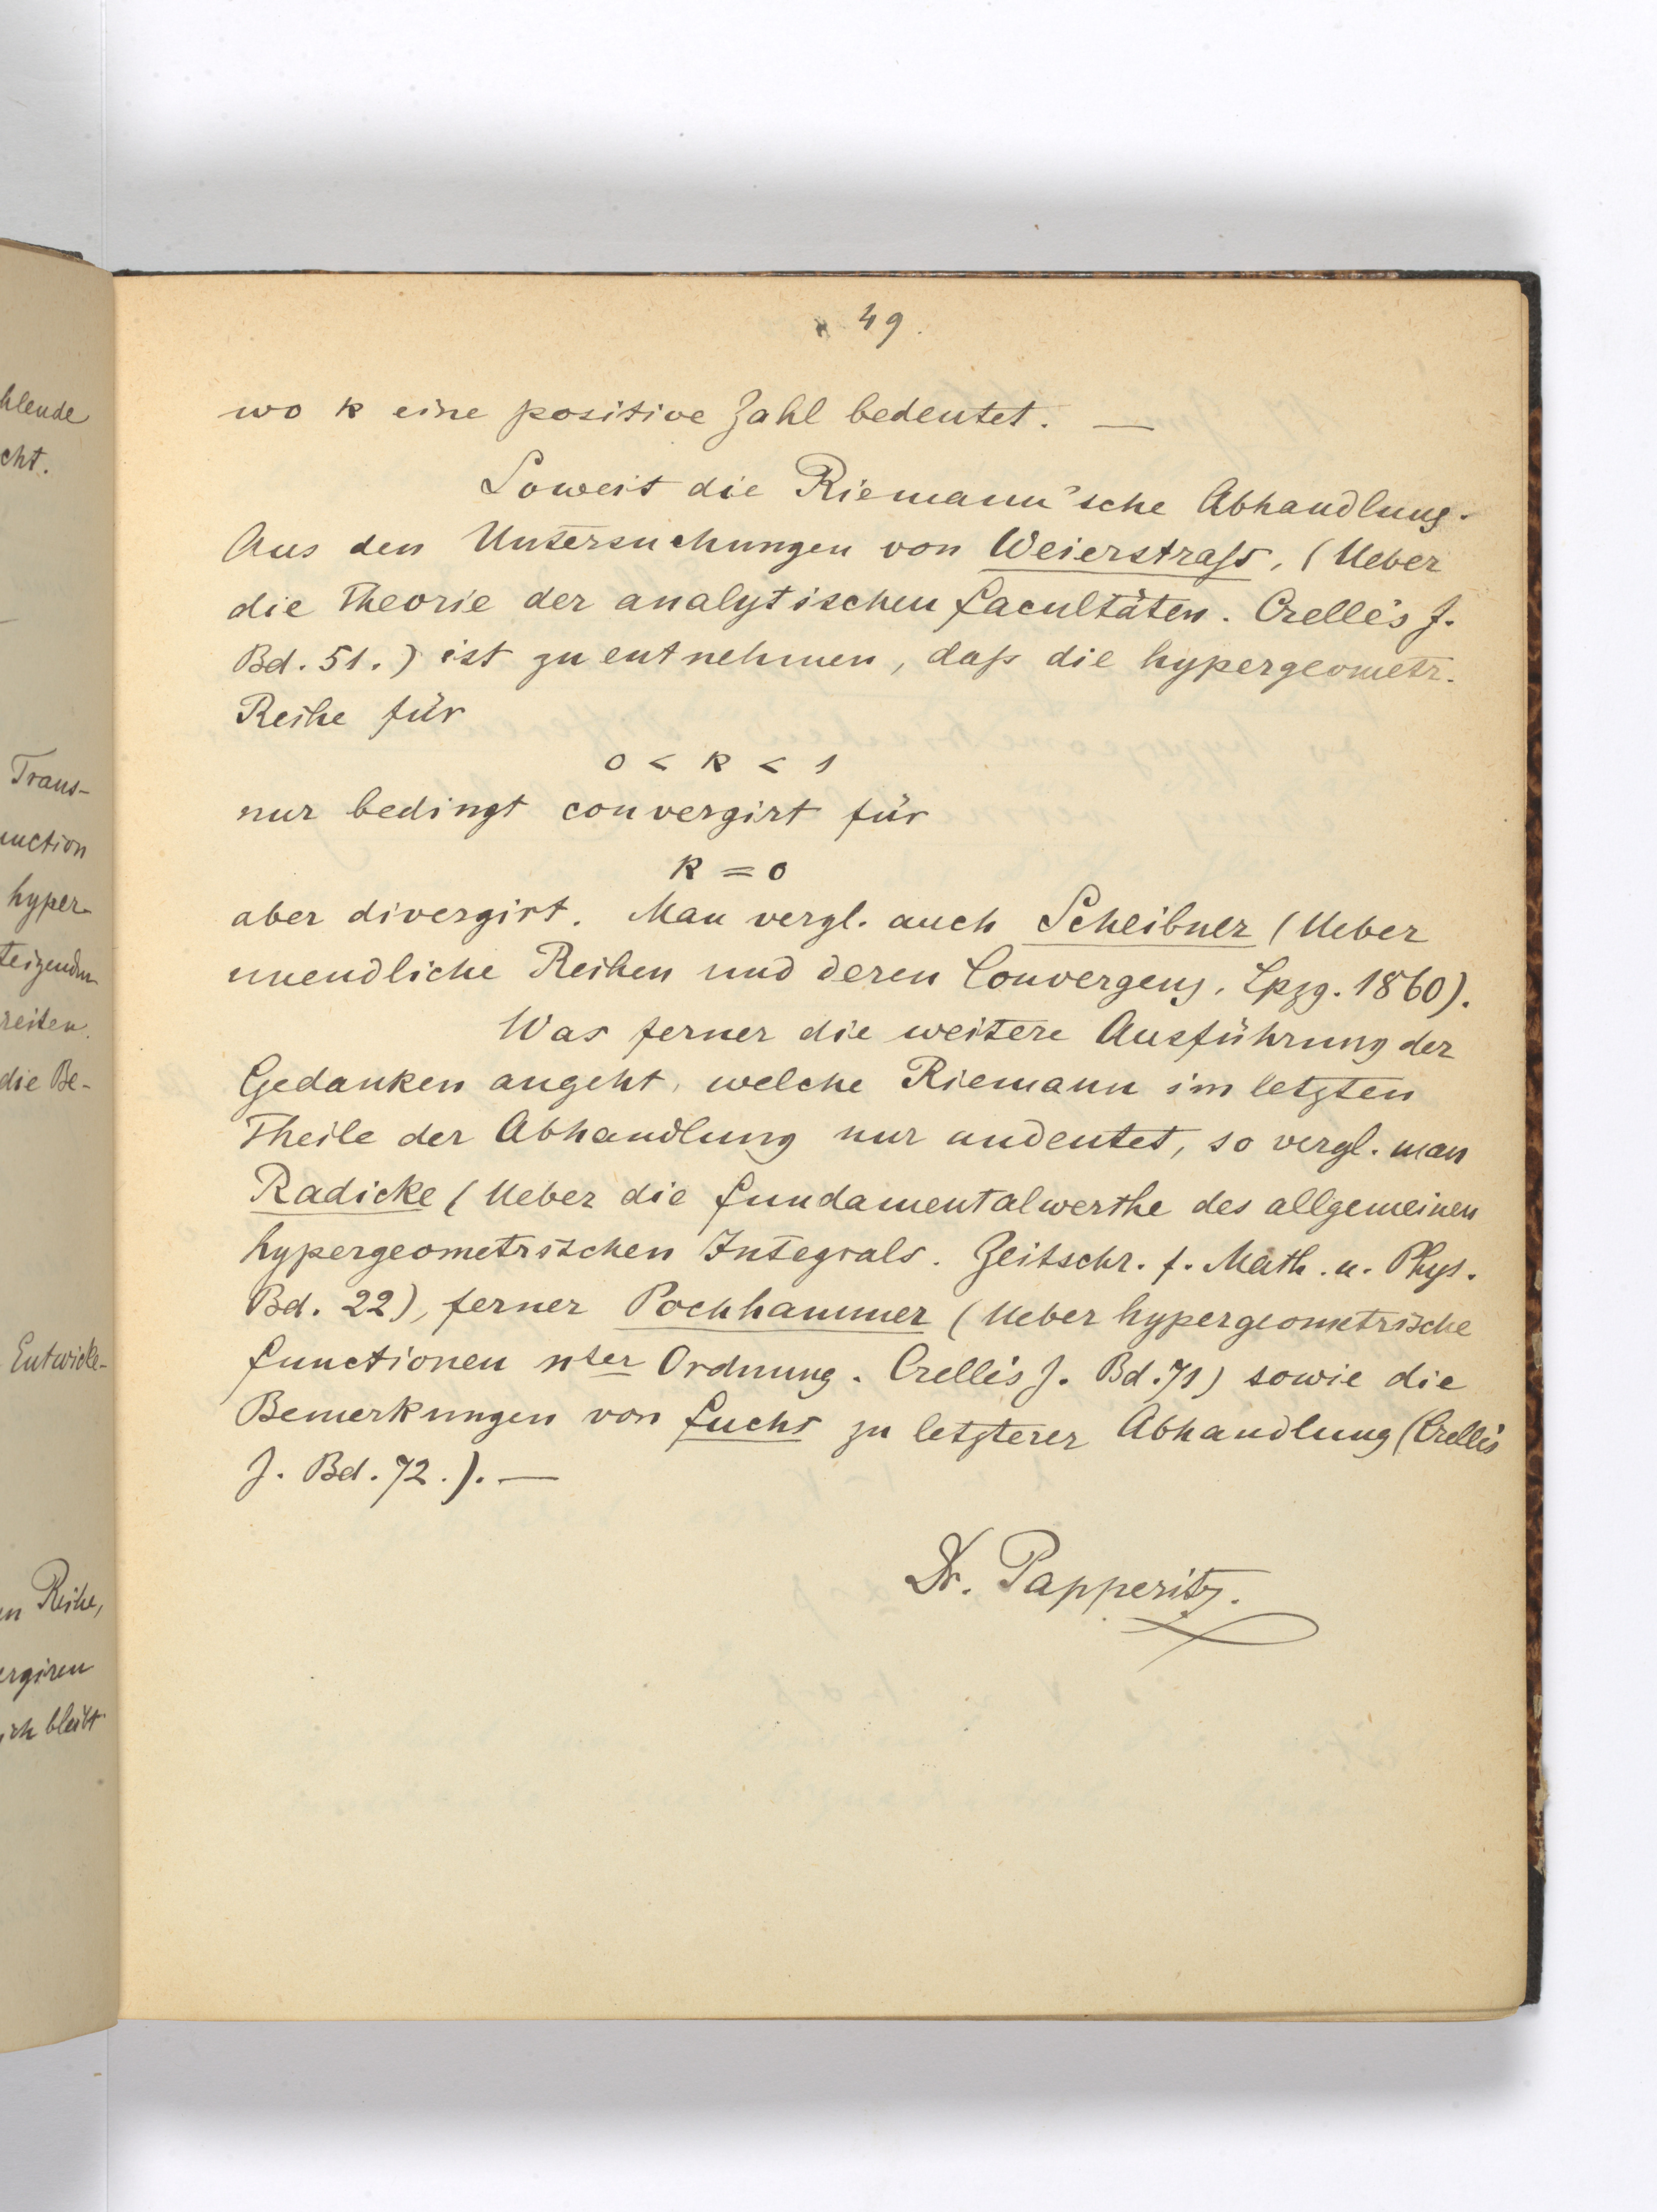 49.
wo k eine positive Zahl bedeutet. —
Soweit die Riemann'sche Abhandlung.
Aus den Untersuchungen von Weierstraſs, (Ueber
die Theorie der analytischen Facultäten. Crelle's J.
Bd. 51.) ist zu entnehmen, daſs die hypergeometr.
Reihe für
0 < k < 1
nur bedingt convergirt für
k = 0
aber divergirt. Man vergl. auch Scheibner (Ueber
unendliche Reihen und deren Convergenz, Lpzg. 1860).
Was ferner die weitere Ausführung der
Gedanken angeht, welche Riemann im letzten
Theile der Abhandlung nur andeutet, so vergl. man
Radicke (Ueber die Fundamentalwerthe des allgemeinen
hypergeometrischen Integrals. Zeitschr. f. Math. u. Phys.
Bd. 22), ferner Pochhammer (Ueber hypergeometrische
Functionen nter Ordnung. Crelle's J. Bd. 71) sowie die
Bemerkungen von Fuchs zu letzterer Abhandlung (Crelle's
J. Bd. 72.). —
Dr. Papperitz.
hlende
cht.
Trans-
unction
hyper-
teigenden
reiten.
die Be-
Entwicke-
en Reihe,
ergiren
ich bleibt